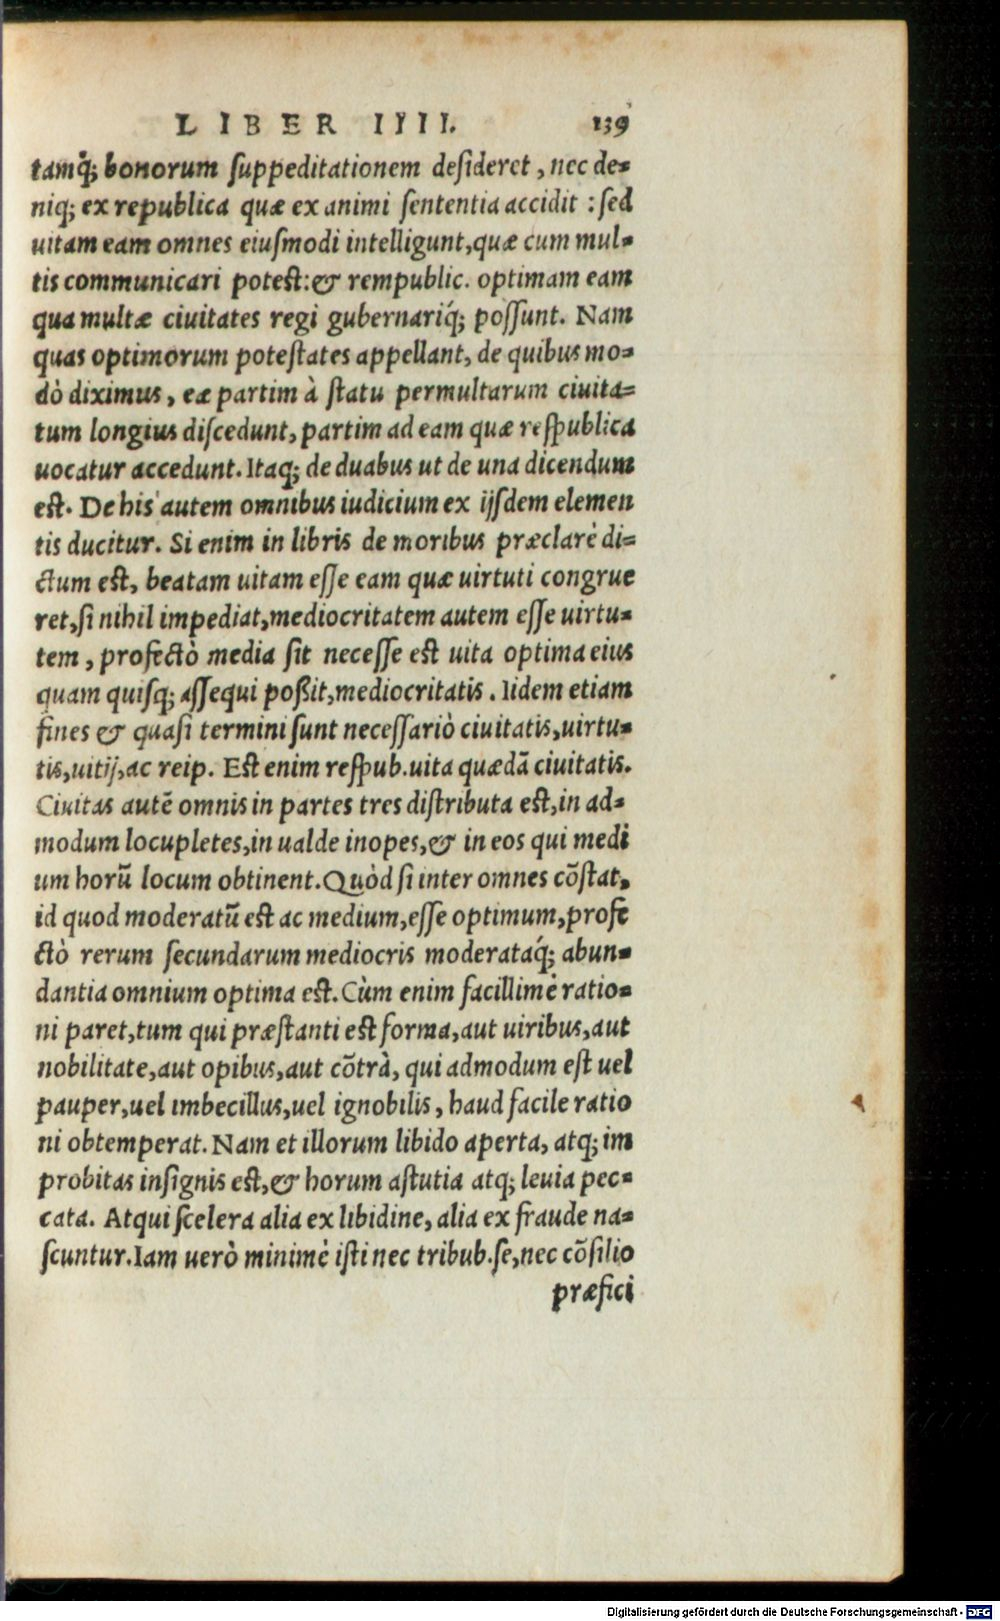 LIBER IIII. 139
tamq́; bonorum ſuppeditationem deſideret, nec de-
niq; ex republica quæ ex animi ſententia accidit : ſed
uitam eam omnes eiuſmodi intelligunt, quæ cum mul-
tis communicari poteſt: & rempublic. optimam eam
qua multæ ciuitates regi gubernariq́; poſſunt. Nam
quas optimorum poteſtates appellant, de quibus mo-
dò diximus, eæ partim à ſtatu permultarum ciuita-
tum longius diſcedunt, partim ad eam quæ reſpublica
uocatur accedunt. Itaq; de duabus ut de una dicendum
eſt. De his autem omnibus iudicium ex ijſdem elemen
tis ducitur. Si enim in libris de moribus præclarè di-
ctum eſt, beatam uitam eſſe eam quæ uirtuti congrue
ret, ſi nihil impediat, mediocritatem autem eſſe uirtu-
tem, profectò media ſit neceſſe eſt uita optima eius
quam quiſq; aſſequi poßit, mediocritatis. Iidem etiam
fines & quaſi termini ſunt neceſſariò ciuitatis, uirtu-
tis, uitij, ac reip. Eſt enim reſpub. uita quædã ciuitatis.
Ciuitas autẽ omnis in partes tres diſtributa eſt, in ad-
modum locupletes, in ualde inopes, & in eos qui medi
um horũ locum obtinent. Quòd ſi inter omnes cõſtat,
id quod moderatũ eſt ac medium, eſſe optimum, profe
ctò rerum ſecundarum mediocris moderataq́; abun-
dantia omnium optima eſt. Cùm enim facillimè ratio-
ni paret, tum qui præſtanti eſt forma, aut uiribus, aut
nobilitate, aut opibus, aut cõtrà, qui admodum eſt uel
pauper, uel imbecillus, uel ignobilis, haud facile ratio
ni obtemperat. Nam et illorum libido aperta, atq; im
probitas inſignis eſt, & horum aſtutia atq; leuia pec-
cata. Atqui ſcelera alia ex libidine, alia ex fraude na-
ſcuntur. Iam uerò minimè iſti nec tribub. ſe, nec cõſilio
præfici
Digitalisierung gefördert durch die Deutsche Forschungsgemeinschaft - DFG